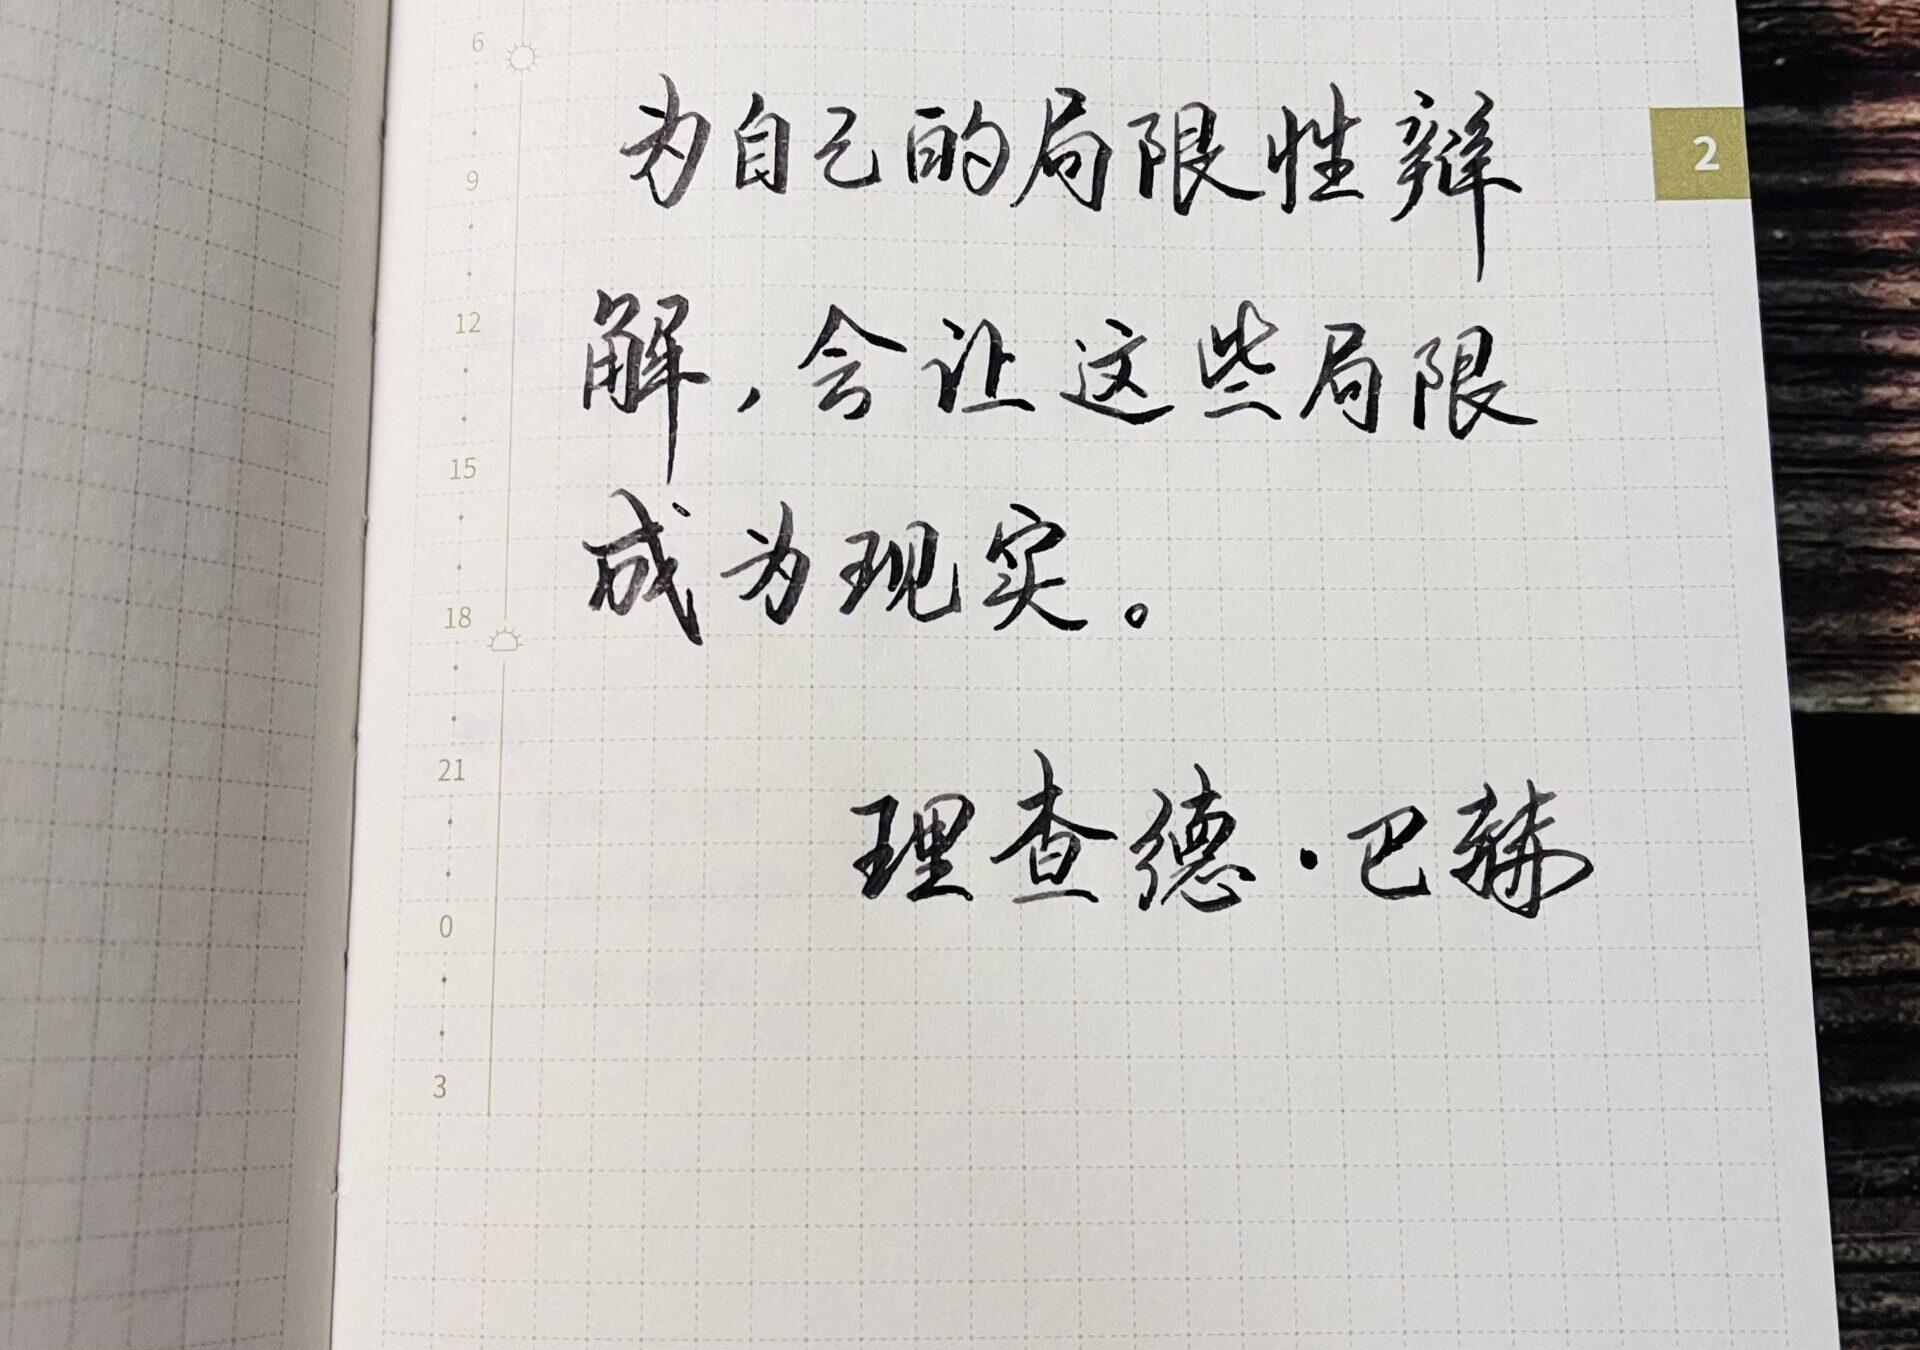 6
为自己的局限性辩
2
9
12
解，会让这些局限
15
成为现实。
18
21
理查德·巴赫
0
3